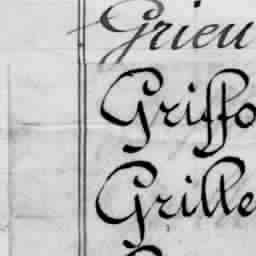 Grieu
Griffo
Grille